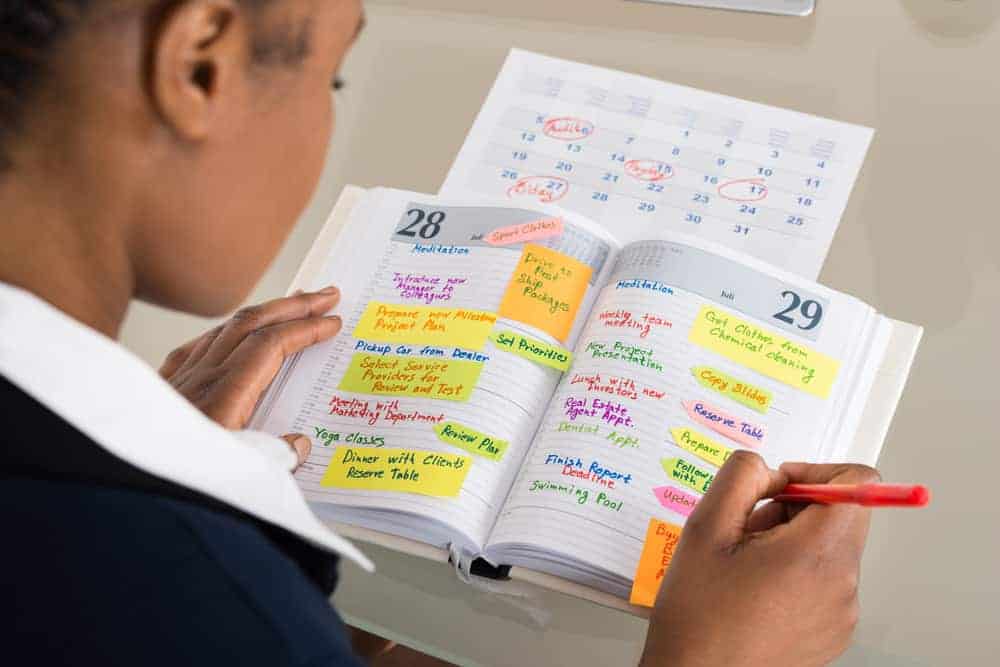 1 2 3 4
5 Audit 6 7 8 9 10 11
12 13 14 15 16 17 18
19 20 21 22 23 24 25
26 27 28 29 30 31
B'day
28
Juli
Sport Clothes
Meditation
Introduce new
Manager to
colleagues
Drive to
Post
Ship
Packages
Prepare new Milestone
Project Plan
Set Priorities
Pickup Car from Dealer
Select Service
Providers for
Review and Test
Meeting with
Marketing Department
Review Plan
Yoga Classes
Dinner with Clients
Reserve Table
Juli
29
Meditation
Get Clothes from
Chemical cleaning
Weekly team
meeting
New Project
Presentation
Copy Slides
Lunch with new
Investors
Reserve Table
Real Estate
Agent Appt.
Dentist Appt.
Prepare
Finish Report
Deadline
Follow
with
Swimming Pool
Updat